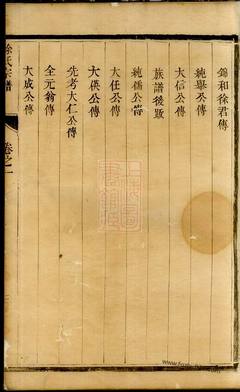 錦和徐君傳
純舉公傳
大信公傳
族譜後跋
純儒公傳
大任公傳
大僙公傳
先考大仁公傳
全元翁傳
大成公傳
徐氏宗譜
卷之一